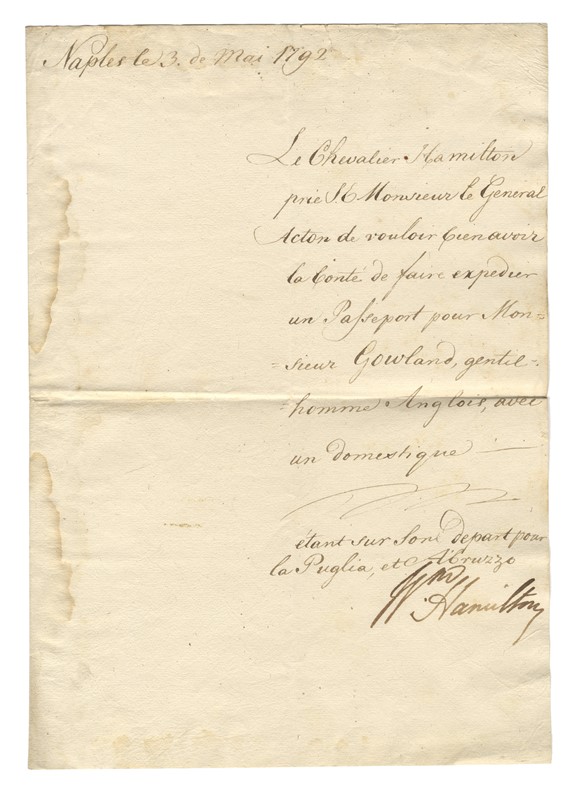 Naples le 3. de Mai 1792
Le Chevalier Hamilton
prie S.E Monsieur le General
Acton de vouloir bien avoir
la bonté de faire expedier
un Passeport pour Mon=
=sieur Gowland, gentil=
=homme Anglois, avec
un domestique —
étant sur son depart pour
la Puglia, et Abruzzo
Wm Hamilton